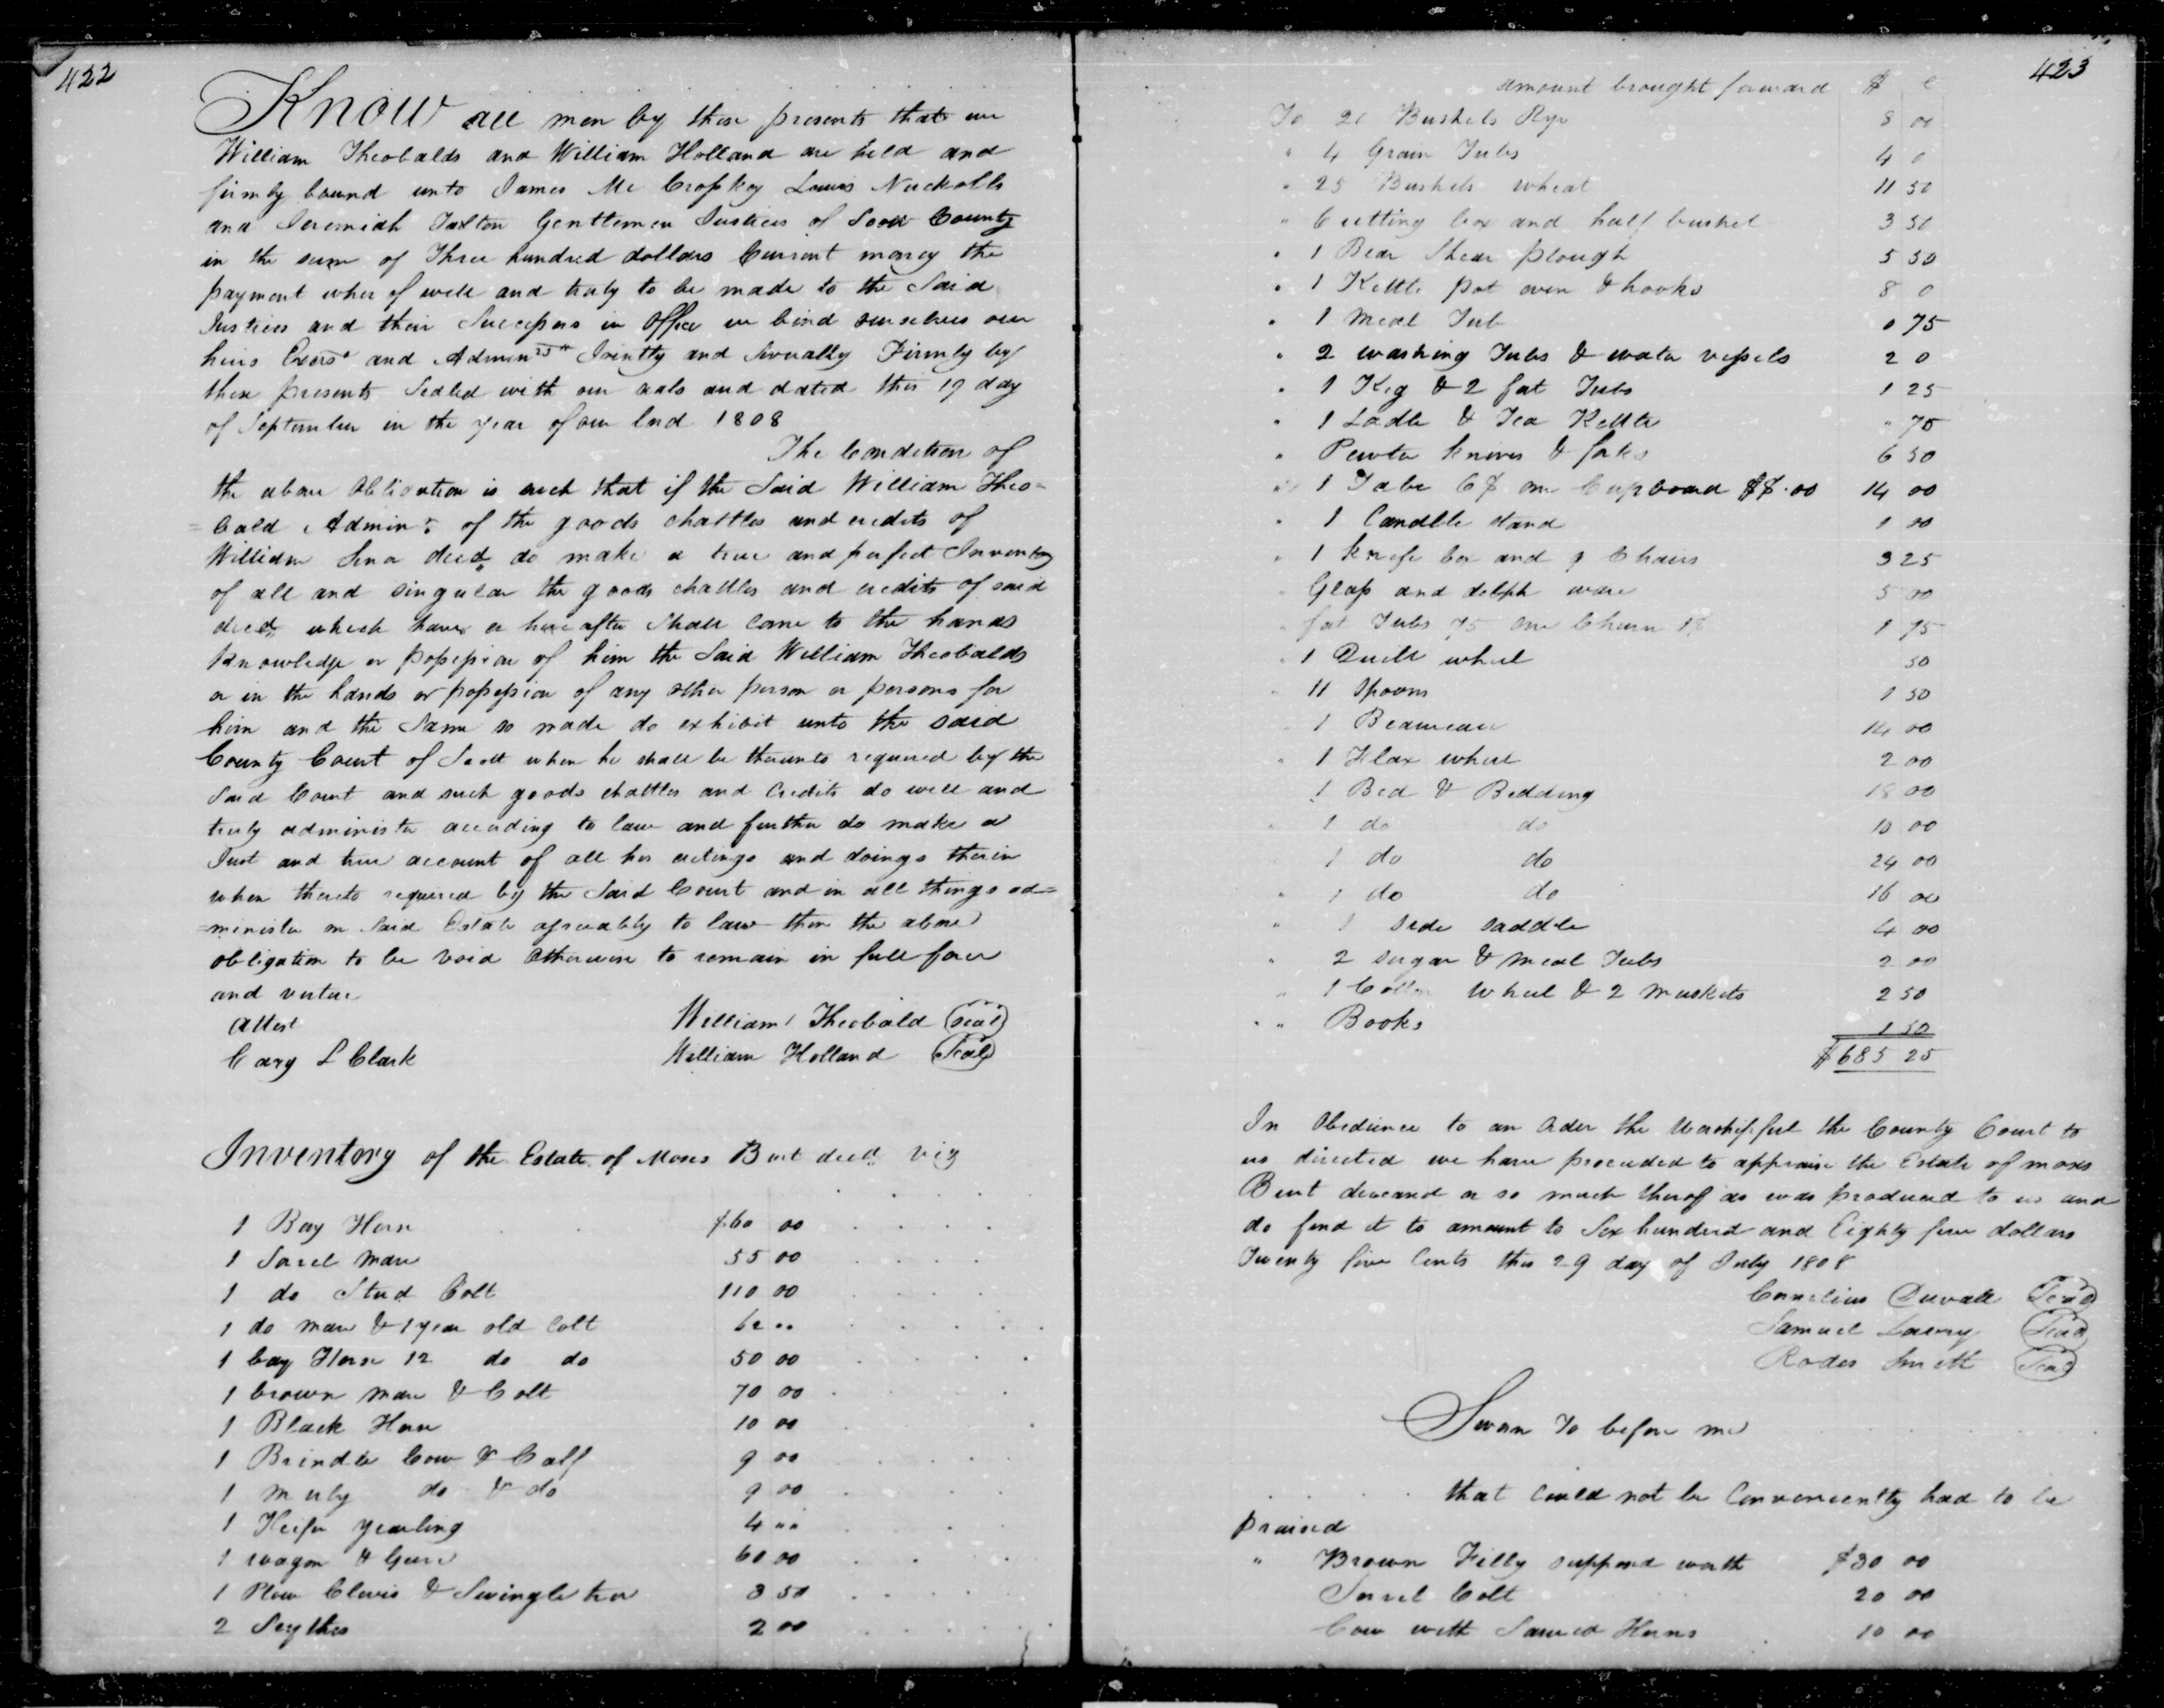 422
Know all men by these presents that we
William Theobalds and William Holland are held and
firmly bound unto James Mc Croskey Lewis Nuckolls
and Jeremiah Tarlton Gentlemen Justices of Scott County
in the sum of Three hundred dollars Current money the
payment wher of well and truly to be made to the Said
Justices and their Successors in Office we bind ourselves our
heirs Exors and Admin Jointly and Severally Firmly by
these presents Sealed with our seals and dated this 19 day
of September in the year of our Lord 1808
The Condition of
the above Obligation is such that if the Said William Theo=
=bald Admin of the goods chattles and credits of
William decd do make a true and perfect Inventory
of all and singular the goods chattles and credits of said
decd which have or hereafter Shall Come to the hands
Knowledge or possession of him the Said William Theobalds
or in the hands or possession of any other person or persons for
him and the Same so made do exhibit unto the said
County Court of Scott when he shall be thereunto required by the
Said Court and such goods chattles and Credits do well and
truly administer according to law and further do make a
Just and true account of all his actings and doings therein
when thereto required by the Said Court and in all things ad=
=minister on Said Estate agreeably to law then the above
obligation to be void Otherwise to remain in full force
and virtue
Attest
William Theobald (seal)
Cary L Clark
William Holland (Seal)
Inventory of the Estate of Moses Burt decd viz
1 Bay Horse $60 00
1 Sorel mare 55 00
1 do Stud Colt 110 00
1 do mare & 1 year old Colt 60 ..
1 bay Horse 12 do do 50 00
1 brown mare & Colt 70 00
1 Black Horse 10 00
1 Brindle Cow & Calf 9 00
1 muly do & do 9 00
1 Heifer yearling 4 ""
1 wagon & Geers 60 00
1 Plow Clevis & Swingle tree 3 50
2 Scythes 2 00
423
amount brought forward $ c
To 20 Bushels Rye 8 00
" 4 Grain Tubs 4 0
" 25 Bushels wheat 11 50
" Cutting box and half bushel 3 50
" 1 Bear Shear plough 5 50
" 1 Kettle pot oven & hooks 8 0
" 1 meal Tub 0 75
" 2 washing Tubs & water vessels 2 0
" 1 Keg & 2 fat Tubs 1 25
" 1 Ladle & Tea Kettle " 75
" Pewter knives & forks 6 50
" 1 Table 6$ one Cupboard $8.00 14 00
" 1 Candlle stand 1 00
" 1 knife box and 9 Chairs 3 25
" Glass and delph ware 5 00
" fat Tubs 75 one Churn 1$ 1 75
" 1 Quill wheel 50
" 11 Spoons 1 50
1 Beaureau 14 00
" 1 Flax wheel 2 00
1 Bed & Bedding 18 00
" 1 do do 10 00
1 do do 24 00
" 1 do do 16 00
" 1 side saddle 4 00
" 2 sugar & meal Tubs 2 00
" 1 Cotton wheel & 2 muskets 2 50
" " Books 1 50
$685 25
In Obedience to an Order the Worshipful the County Court to
us directed we have proceeded to appraise the Estate of moses
Burt deceased or so much therof as was produced to us and
do find it to amount to Six hundred and Eighty five dollars
Twenty five Cents this 29 day of July 1808
Cornelius Duvall (Seal)
Samuel Lowry (Seal)
Rodes Smith (Seal)
Sworn To before me
that could not be Conveniently had to be
praised
" Brown Filly supposed worth $30 00
Sorrel Colt 20 00
Cow with Sawed Horns 10 00